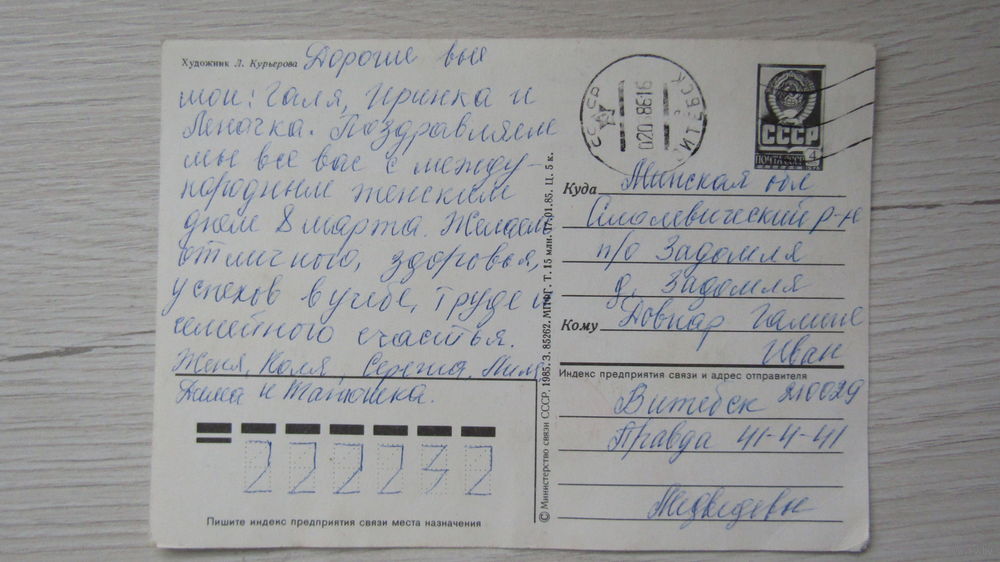 Художник Л. Курьерова
Дорогие вы
мои: Галя, Иринка и
Леночка. Поздравляем
мы все вас с между-
народным женским
днем 8 марта. Желаем
отличного, здоровья,
успехов в учебе, труде и
семейного счастья.
Женя, Коля, Сережа,
Дима и Танюшка.
222232
Пишите индекс предприятия связи места назначения
© Министерство связи СССР. 1985. З. 85262. МПФГ. Т. 15 млн. 17.01.85. Ц. 5 к.
СССР
ВИТЕБСК
СССР
ПОЧТА СССР
4
Куда Минская обл
Смолевический р-н
п/о Задомля
д. Задомля
Кому Довнар Галине
Иван
Индекс предприятия связи и адрес отправителя
Витебск 210029
Правда 41-4-41
Медведевы